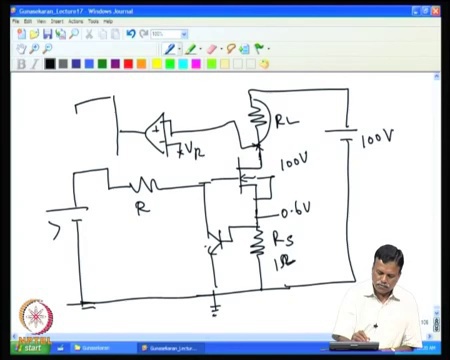 Gunasekaran_Lecture17 - Windows Journal
File Edit View Insert Actions Tools Help
100%
B I
RL
+
VR
100V
100V
R
0.6V
RS
1Ω
NPTEL
start
Gunasekaran
Gunasekaran_Lectu...